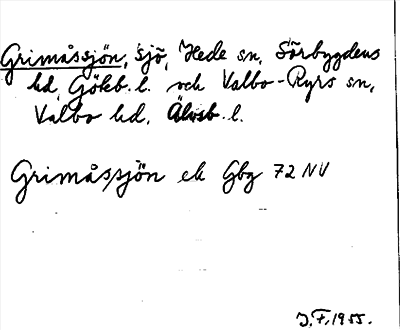 Grimåssjön, sjö, Hede sn, Sörbygdens
hd, Göteb. l. och Valbo-Ryrs sn,
Valbo hd, Älvsb. l.
Grimåssjön ek Gbg 72 NV
J.F. 1955.